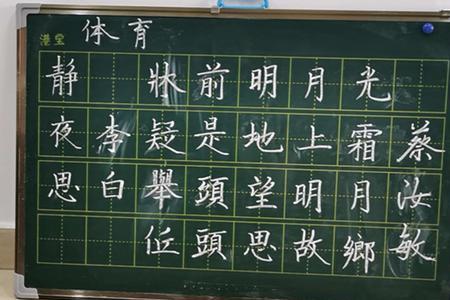 港宝
体育
静夜思
李白
牀前明月光
疑是地上霜
舉頭望明月
低頭思故鄉
蔡汝敏